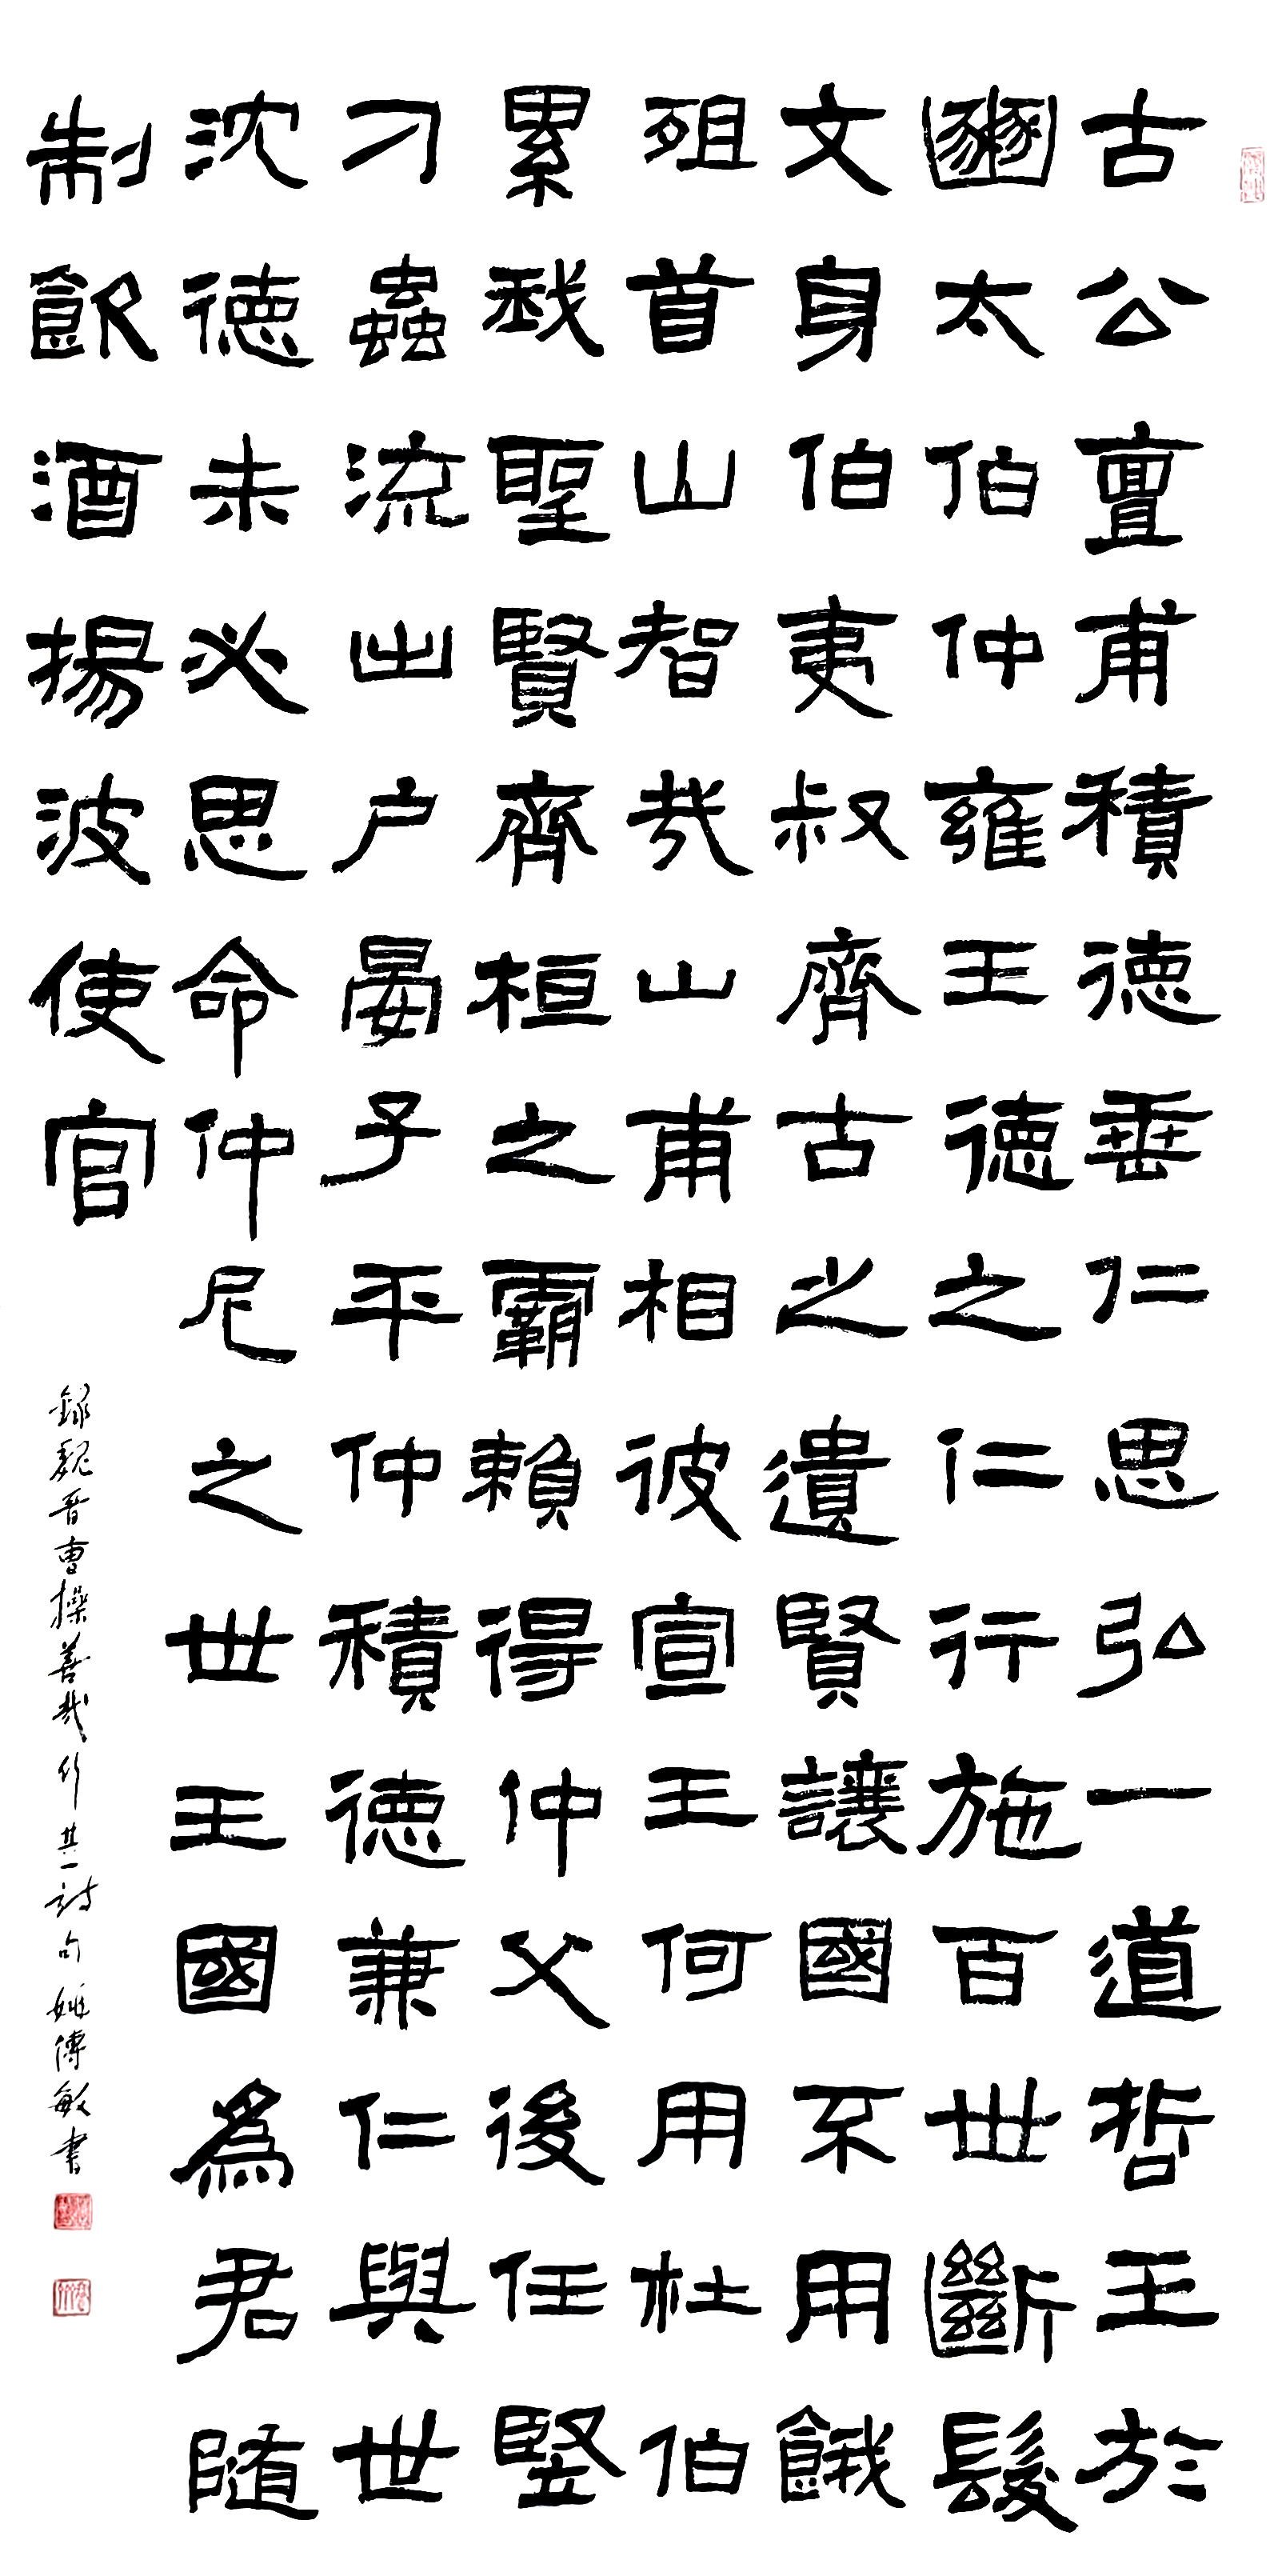 古公亶甫積德垂仁思弘一道哲王於
豳太伯仲雍王德之仁行施百世斷髮
文身伯夷叔齊古之遺賢讓國不用餓
殂首山智哉山甫相彼宣王何用杜伯
累我聖賢齊桓之霸賴得仲父後任豎
刁蟲流出户晏子平仲積德兼仁與世
沈德未必思命仲尼之世王國為君随
制飲酒揚波使官
録魏晉曹操善哉行其一詩句姚傳敏書